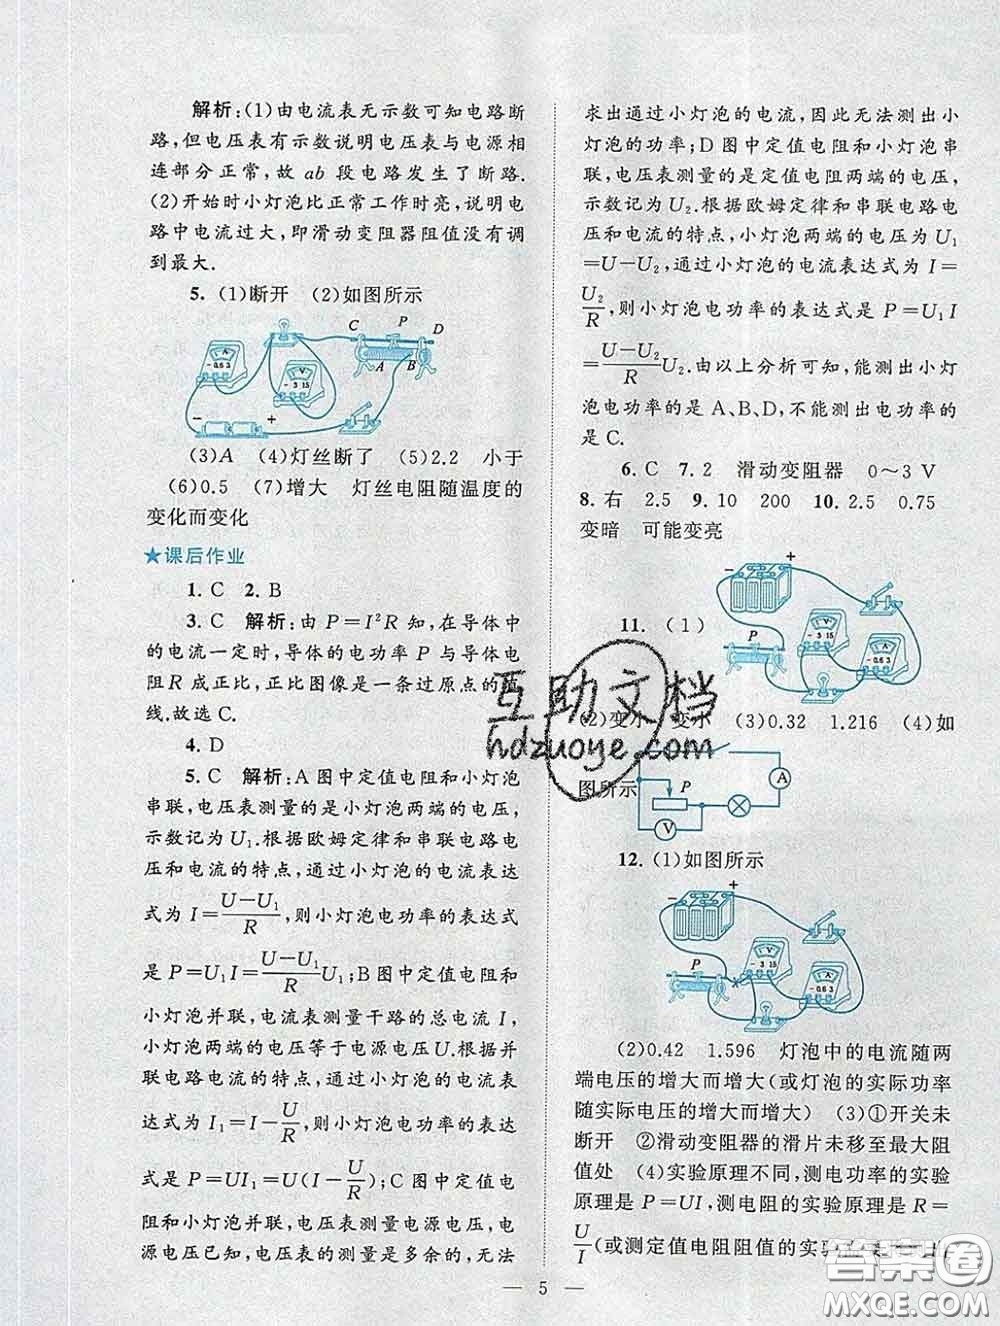 解析:(1)由电流表无示数可知电路断
路,但电压表有示数说明电压表与电源相
连部分正常,故 ab 段电路发生了断路.
(2)开始时小灯泡比正常工作时亮,说明电
路中电流过大,即滑动变阻器阻值没有调
到最大.
5. (1)断开 (2)如图所示
C P D
A B
A
-0.6 3
V
-3 15
- +
(3)A (4)灯丝断了 (5)2.2 小于
(6)0.5 (7)增大 灯丝电阻随温度的
变化而变化
★课后作业
1. C 2. B
3. C 解析:由 P=I²R 知,在导体中
的电流一定时,导体的电功率 P 与导体电
阻 R 成正比,正比图像是一条过原点的
线.故选 C.
4. D
5. C 解析:A 图中定值电阻和小灯泡
串联,电压表测量的是小灯泡两端的电压,
示数记为 U₁.根据欧姆定律和串联电路电
压和电流的特点,小灯泡的电流表达
式为 I=(U-U₁)/R,则小灯泡电功率的表达式
是 P=U₁I=(U-U₁)/R U₁;B 图中定值电阻和
小灯泡并联,电流表测量干路的总电流 I,
小灯泡两端的电压等于电源电压 U.根据并
联电路电流的特点,通过小灯泡的电流表
达式为 I₁=I-U/R,则小灯泡电功率的表达式
是 P=UI₁=U(I-U/R);C 图中定值电
阻和小灯泡并联,电压表测量电源电压,
电源电压已知,电压表的测量是多余的,无法
求出通过小灯泡的电流,因此无法测出小
灯泡的功率;D 图中定值电阻和小灯泡串
联,电压表测量的是定值电阻两端的电压,
示数记为 U₂.根据欧姆定律和串联电路电
压和电流的特点,小灯泡两端的电压为 U₁
=U-U₂,通过小灯泡的电流表达式为 I=
U₂/R,则小灯泡电功率的表达式是 P=U₁I
=(U-U₂)/R U₂.由以上分析可知,能测出小灯
泡电功率的是 A、B、D,不能测出电功率的
是 C.
6. C 7. 2 滑动变阻器 0～3 V
8. 右 2.5 9. 10 200 10. 2.5 0.75
变暗 可能变亮
11. (1)
- +
P
V
-3 15
A
-0.6 3
(2)变小 变小 (3)0.32 1.216 (4)如
图所示
P
A
V
12. (1)如图所示
- +
P
V
-3 15
A
-0.6 3
(2)0.42 1.596 灯泡中的电流随两
端电压的增大而增大(或灯泡的实际功率
随实际电压的增大而增大) (3)①开关未
断开 ②滑动变阻器的滑片未移至最大阻
值处 (4)实验原理不同,测电功率的实验
原理是 P=UI,测电阻的实验原理是 R=
U/I(或测定值电阻阻值的实验
— 5 —
互助文档
hdzuoye.com
答案圈
MXQE.COM